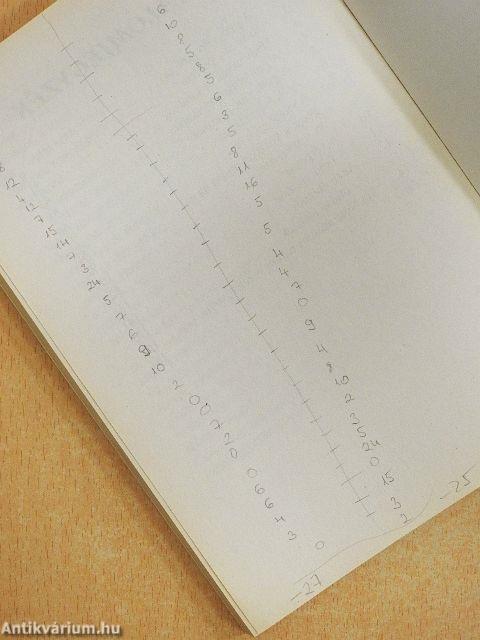 6
10
2
5
8
5
6
3
5
8
11
16
5
5
4
4
7
0
4
8
10
2
3
5
24
0
15
3
2
-25
8
12
4
12
7
15
14
7
3
24
5
7
6
10
2
0
0
7
2
0
0
6
6
4
3
0
-27
Antikvárium.hu